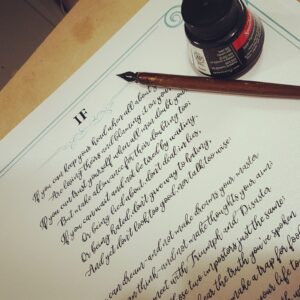 IF
If you can keep your head when all about you
Are losing theirs and blaming it on you,
If you can trust yourself when all men doubt you,
But make allowance for their doubting too;
If you can wait and not be tired by waiting,
Or being lied about, don't deal in lies,
Or being hated, don't give way to hating,
And yet don't look too good, nor talk too wise:
can dream-and not make dreams your master
think-and not make thoughts your aim;
meet with Triumph and Disaster
those two impostors just the same;
bear to hear the truth you've spoken
make a trap for
your life to